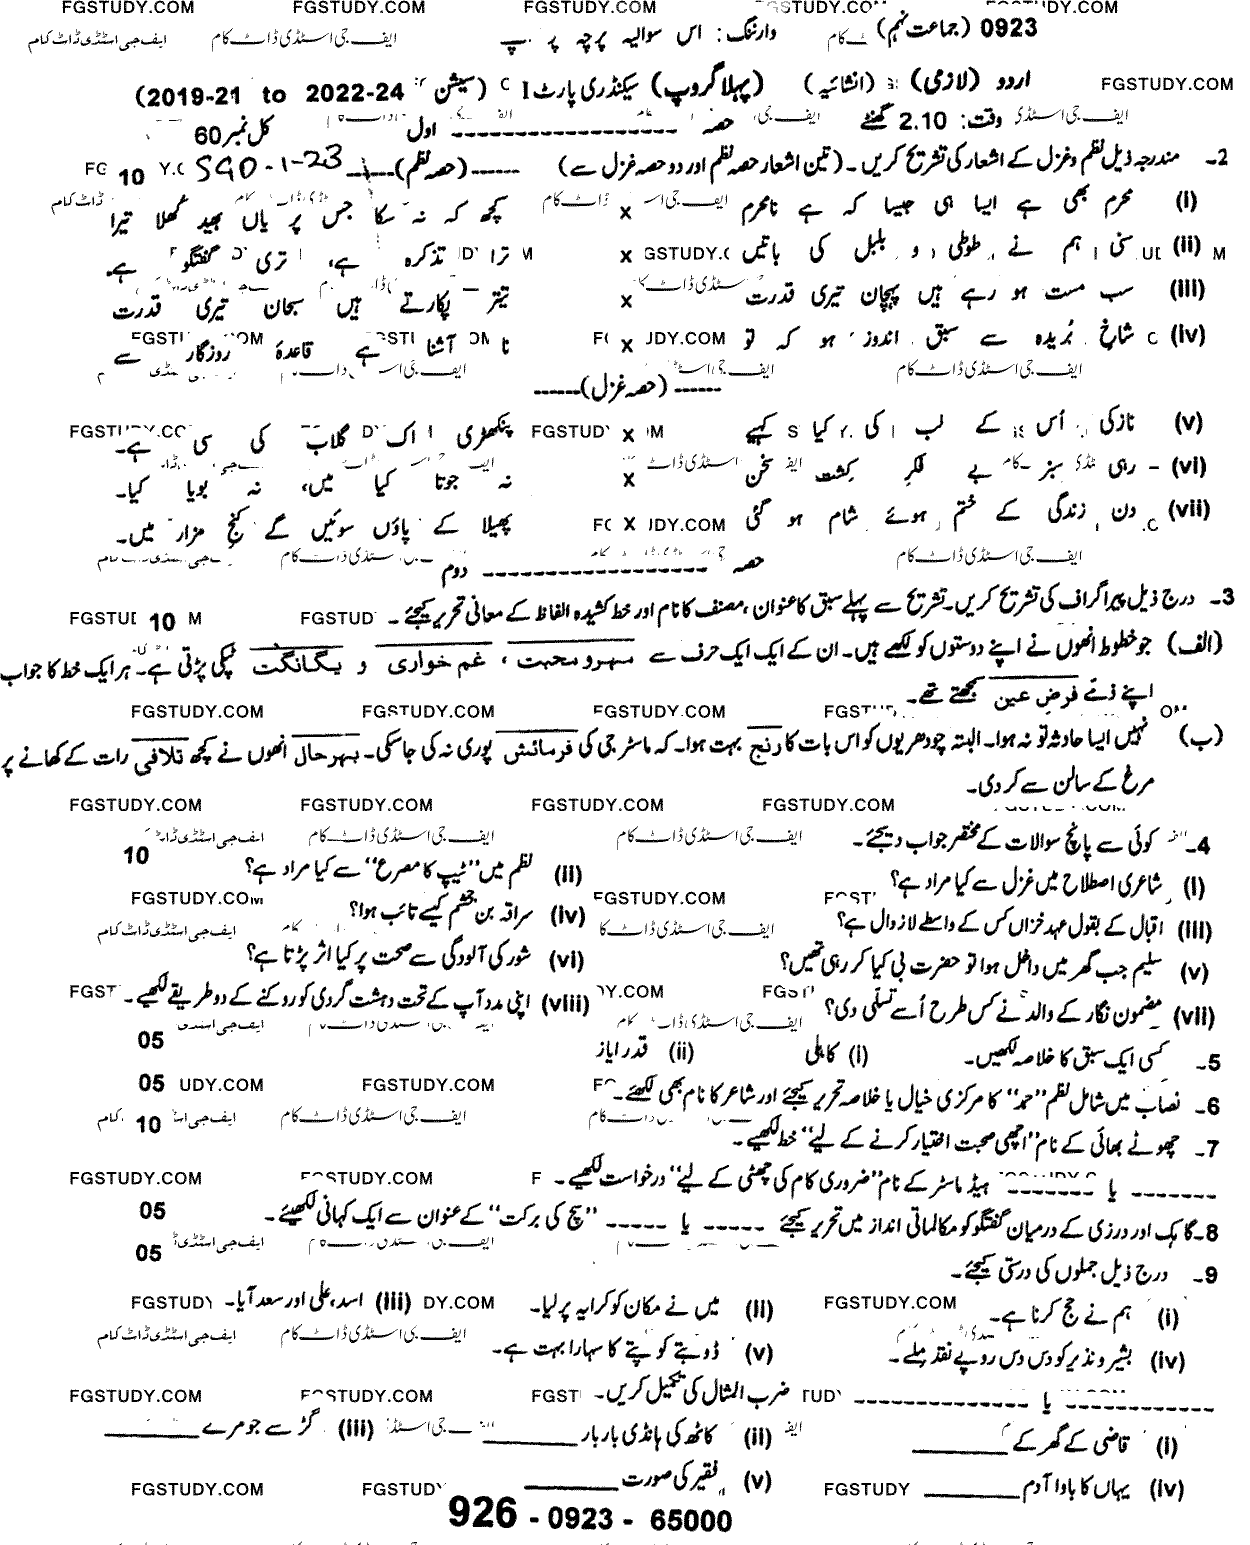 FGSTUDY.COM FGSTUDY.COM FGSTUDY.COM STUDY.CO DY.COM
0923 (جماعت نہم) وارننگ: اس سوالیہ پرچہ پر
ایف جی اسٹڈی ڈاٹ کام ایف جی اسٹڈی ڈاٹ کام
اردو (لازمی) (انشائیہ) (پہلا گروپ) سیکنڈری پارٹ I (سیشن 2019-21 to 2022-24)
FGSTUDY.COM
وقت: 2.10 گھنٹے حصہ ---------------- اول کل نمبر 60
2۔ مندرجہ ذیل نظم و غزل کے اشعار کی تشریح کریں۔ (تین اشعار حصہ نظم اور دو حصہ غزل سے) ------(حصہ نظم)------ SGD-1-23 10
(i) محرم بھی ہے ایسا ہی جیسا کہ ہے نامحرم x کچھ کہ نہ سکا جس پر یاں بھید کھلا تیرا
(ii) سنی ہم نے طوطی و بلبل کی باتیں x ترا تذکرہ ہے، تری گفتگو ہے
(iii) سب مست ہو رہے ہیں پہچان تیری قدرت x تیتر پکارتے ہیں سبحان تیری قدرت
(iv) شاخ بُریدہ سے سبق اندوز ہو کہ تو x نا آشنا ہے قاعدۂ روزگار سے
------(حصہ غزل)------
(v) نازکی اُس کے لب کی کیا کہیے x پنکھڑی اک گلاب کی سی ہے۔
(vi) رہی سبز بے فکر کِشت سخن x نہ جوتا کیا میں، نہ بویا کیا۔
(vii) دن زندگی کے ختم ہوئے شام ہو گئی x پھیلا کے پاؤں سوئیں گے کنج مزار میں۔
حصہ ------------------ دوم
3۔ درج ذیل پیراگراف کی تشریح کریں۔ تشریح سے پہلے سبق کا عنوان، مصنف کا نام اور خط کشیدہ الفاظ کے معانی تحریر کیجئے۔ 10
(الف) جو خطوط انھوں نے اپنے دوستوں کو لکھے ہیں۔ ان کے ایک ایک حرف سے مہرومحبت، غم خواری و یگانگت ٹپکی پڑتی ہے۔ ہر ایک خط کا جواب
اپنے ذمے فرض عین سمجھتے تھے۔
FGSTUDY.COM FGSTUDY.COM FGSTUDY.COM
(ب) نہیں ایسا حادثہ تو نہ ہوا۔ البتہ چودھریوں کو اس بات کا رنج بہت ہوا۔ کہ ماسٹر جی کی فرمائش پوری نہ کی جا سکی۔ بہرحال انھوں نے کچھ تلافی رات کے کھانے پر
مرغ کے سالن سے کر دی۔
FGSTUDY.COM FGSTUDY.COM FGSTUDY.COM FGSTUDY.COM
4۔ کوئی سے پانچ سوالات کے مختصر جواب دیجئے۔ 10
(i) شاعری اصطلاح میں غزل سے کیا مراد ہے؟ (ii) نظم میں "ٹیپ کا مصرع" سے کیا مراد ہے؟
(iii) اقبال کے بقول عہد خزاں کس کے واسطے لازوال ہے؟ (iv) سراقہ بن جعشم کیسے تائب ہوا؟
(v) سلیم جب گھر میں داخل ہوا تو حضرت بی کیا کر رہی تھیں؟ (vi) شور کی آلودگی سے صحت پر کیا اثر پڑتا ہے؟
(vii) مضمون نگار کے والد نے کس طرح اُسے تسلی دی؟ (viii) اپنی مدد آپ کے تحت دہشت گردی کو روکنے کے دو طریقے لکھیے۔
5۔ کسی ایک سبق کا خلاصہ لکھیں۔ (i) کاہلی (ii) قدر ایاز 05
6۔ نصاب میں شامل نظم "حمد" کا مرکزی خیال یا خلاصہ تحریر کیجئے اور شاعر کا نام بھی لکھئے۔ 05
7۔ چھوٹے بھائی کے نام "اچھی صحبت اختیار کرنے کے لیے" خط لکھیے۔ 10
------- یا ------- ہیڈ ماسٹر کے نام "ضروری کام کی چھٹی کے لیے" درخواست لکھیے۔
8۔ گاہک اور درزی کے درمیان گفتگو کو مکالماتی انداز میں تحریر کیجئے ----- یا ----- "سچ کی برکت" کے عنوان سے ایک کہانی لکھیئے۔ 05
9۔ درج ذیل جملوں کی درستی کیجئے۔ 05
(i) ہم نے حج کرنا ہے۔ (ii) میں نے مکان کو کرایہ پر لیا۔ (iii) اسد، علی اور سعد آیا۔
(iv) بشیر و نذیر کو دس دس روپے نقد ملے۔ (v) ڈوبتے کو پتے کا سہارا بہت ہے۔
------------ یا ------------ ضرب المثال کی تکمیل کریں۔
(i) قاضی کے گھر کے ________ (ii) کاٹھ کی ہانڈی بار بار ________ (iii) گڑ سے جو مرے ________
(iv) یہاں کا باوا آدم ________ (v) فقیر کی صورت ________
FGSTUDY.COM
926 - 0923 - 65000